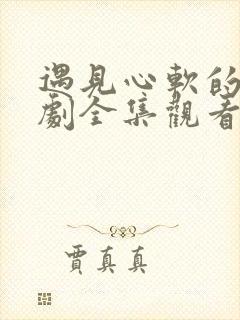 遇見心軟的
劇全集觀看
賈真真